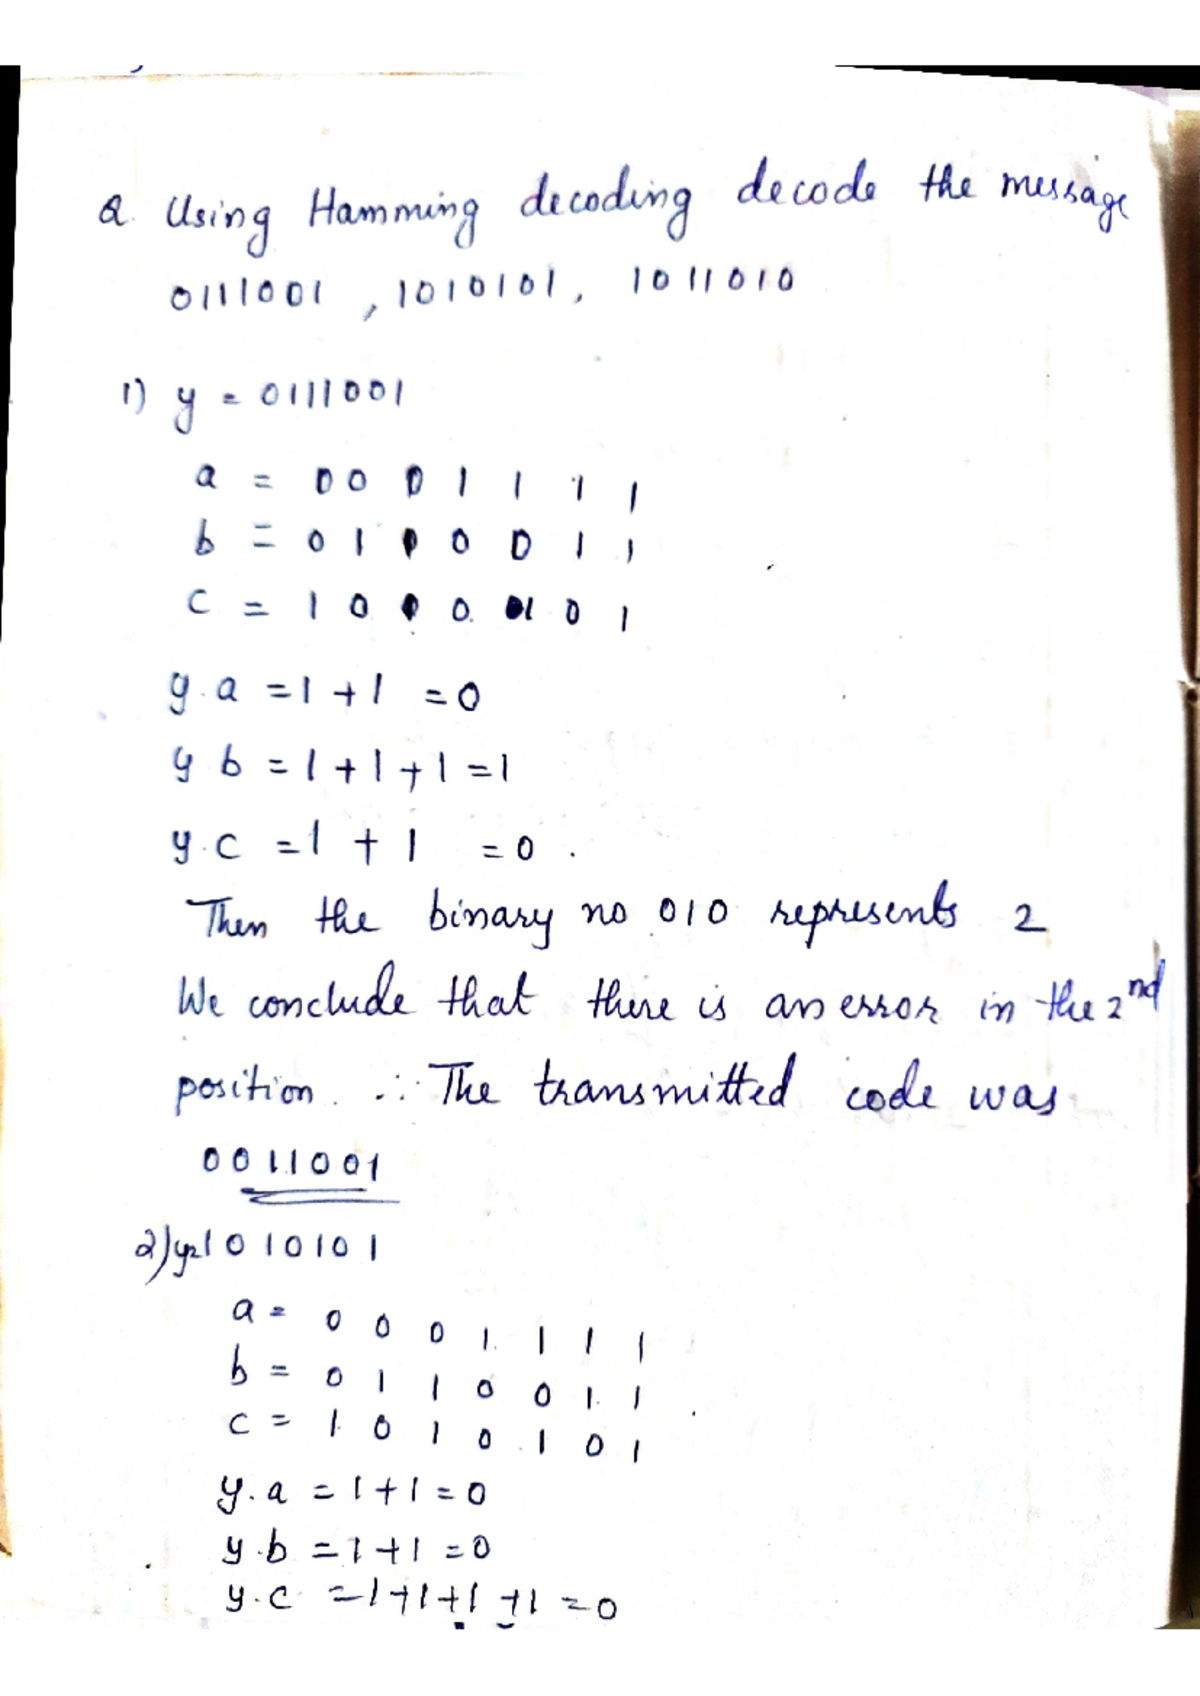 Q. Using Hamming decoding decode the message
0111001 , 1010101, 1011010
1) y = 0111001
a = 0 0 0 1 1 1 1
b = 0 1 1 0 0 1 1
c = 1 0 1 0 1 0 1
y.a = 1 + 1 = 0
y b = 1 + 1 + 1 = 1
y.c = 1 + 1 = 0 .
Then the binary no 010 represents 2
We conclude that there is an error in the 2nd
position. ∴ The transmitted code was
0011001
2) y = 1010101
a = 0 0 0 1 1 1 1
b = 0 1 1 0 0 1 1
c = 1 0 1 0 1 0 1
y.a = 1 + 1 = 0
y.b = 1 + 1 = 0
y.c = 1 + 1 + 1 + 1 = 0